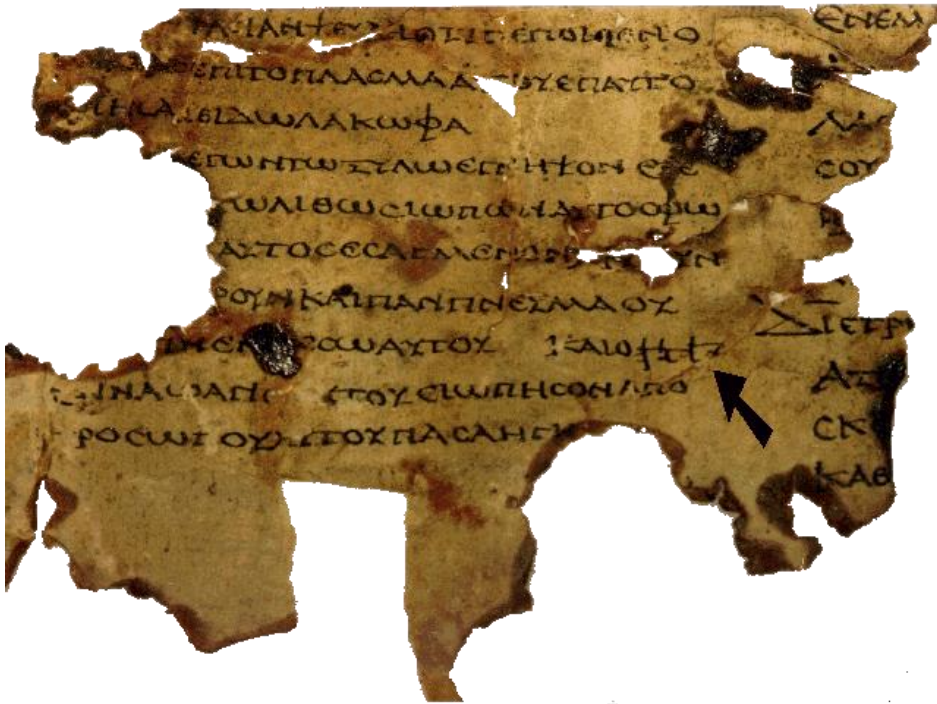 ΑϹΙΑΝΨΕΥ ΟΤΙΠΕΠΟΙΘΕΝΟ
ΕΠΙΤΟΠΛΑϹΜΑΑΥΤΟΥΕΠΑΥΤΟ
ΗϹΑΙΕΙΔΩΛΑΚΩΦΑ
ΕΓΩΝΤΩΞΥΛΩΕΓΝΗΨΟΝΕΞΕ
ΤΩΛΙΘΩϹΙΩΠΩΝΑΥΤΟϹΦΩ
ΑΥΤΟϹΕϹΑΓΜΕΝΟΝ ΥΝ
ΡΟΥΝΚΑΙΠΑΝΠΝΕΥΜΑΟΥΚ
ΕΝΜΕϹΩΑΥΤΟΥ ΚΑΙΟ𐤉𐤄𐤅𐤄
ΝΑΩΑΓΙ ΥΤΟΥϹΙΩΠΗϹΟΝΑΠΟ
ΡΟϹΩΠΟΥΑΥΤΟΥΠΑϹΑΗΓΗ
ΕΝΕΜ
ΛΑ
ϹΟΥ
ΔΙΕΤΡ
ΑΤ
ϹΚ
ΚΑΘ